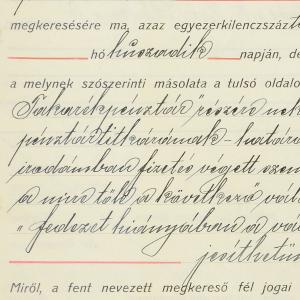 megkeresésére ma, azaz egyezerkilenczszázt
hó huszadik napján, de
a melynek szószerinti másolata a tulsó oldalo
Takarékpénztár részére nek
pénztártitkárának - határi
irodámban fizetés végett szem
a mire tőle a következő vála
„fedezet hiányában a vá
jesíthetün
Miről, a fent nevezett megkereső fél jogai